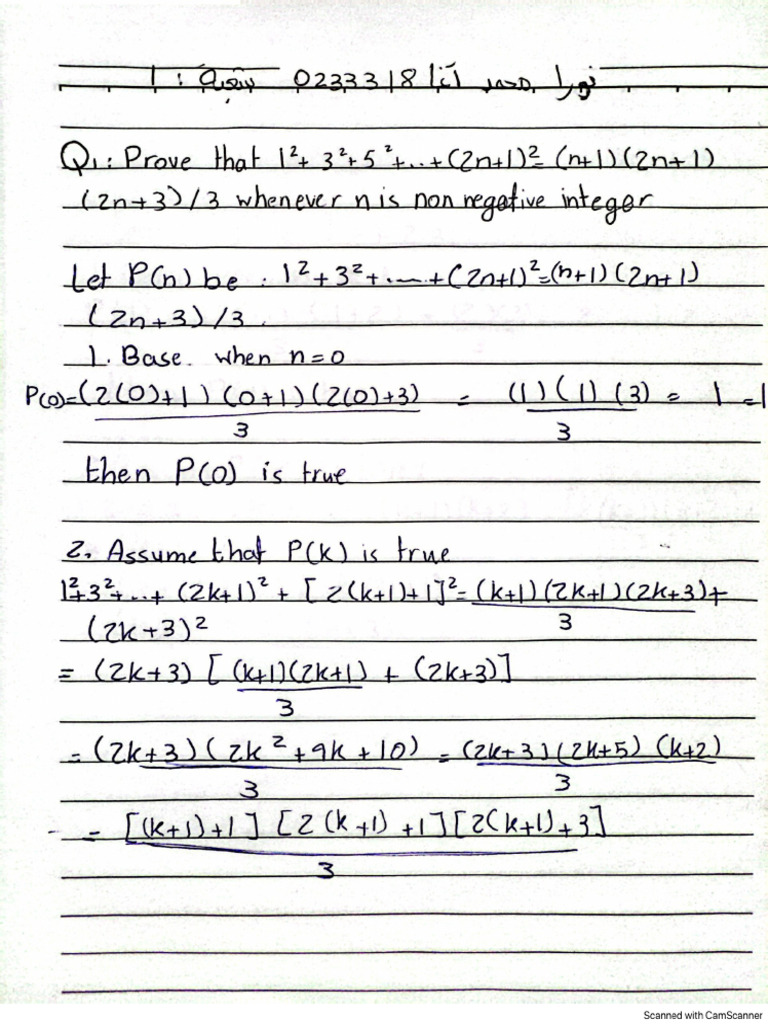 نورا محمد آغا 0233318 شعبة : 1
Q1: Prove that 1²+ 3²+5²+...+(2n+1)²= (n+1)(2n+1)
(2n+3)/3 whenever n is non negative integer
Let P(n) be : 1²+3²+....+(2n+1)²=(n+1)(2n+1)
(2n+3)/3.
1. Base. when n=0
P(0)=(2(0)+1)(0+1)(2(0)+3)/3 = (1)(1)(3)/3 = 1 =1
then P(0) is true
2. Assume that P(k) is true
1²+3²+...+ (2k+1)² + [2(k+1)+1]²= (k+1)(2k+1)(2k+3)/3 +
(2k+3)²
= (2k+3) [(k+1)(2k+1)/3 + (2k+3)]
= (2k+3)(2k²+9k+10)/3 = (2k+3)(2k+5)(k+2)/3
= [(k+1)+1] [2(k+1)+1][2(k+1)+3]/3
Scanned with CamScanner